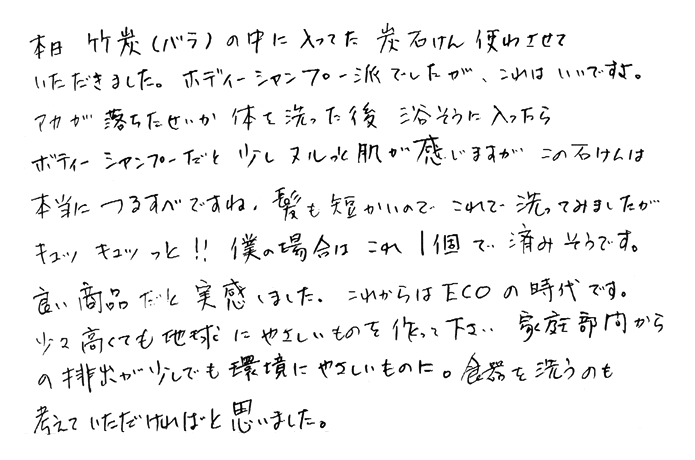 本日 竹炭(バラ)の中に入ってた 炭石けん 使わさせて
いただきました。ボディーシャンプー派でしたが、これは いいですよ。
アカが 落ちたせいか 体を洗った後 浴そうに入ったら
ボディーシャンプーだと 少し ヌルっと 肌が 感じますが この石けんは
本当に つるすべですね。髪も短かいので これで 洗ってみましたが
キュッ キュッ っと!! 僕の場合は これ 1個で 済みそうです。
良い商品だと 実感しました。これからは ECO の時代です。
少々高くても地球に やさしいものを 作って下さい 家庭部門から
の排出が少しでも環境に やさしいものに。食器を洗うのも
考えていただければと思いました。